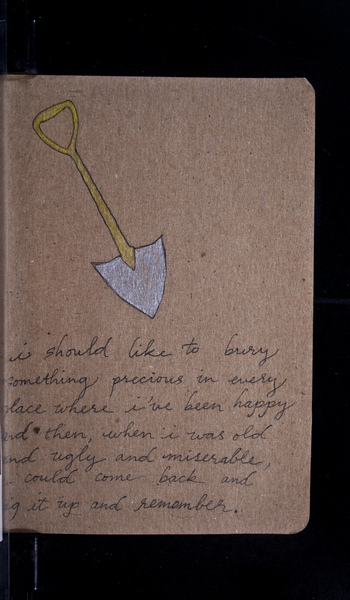 i should like to bury
something precious in every
place where i've been happy
and then, when i was old
and ugly and miserable,
i could come back and
dig it up and remember.